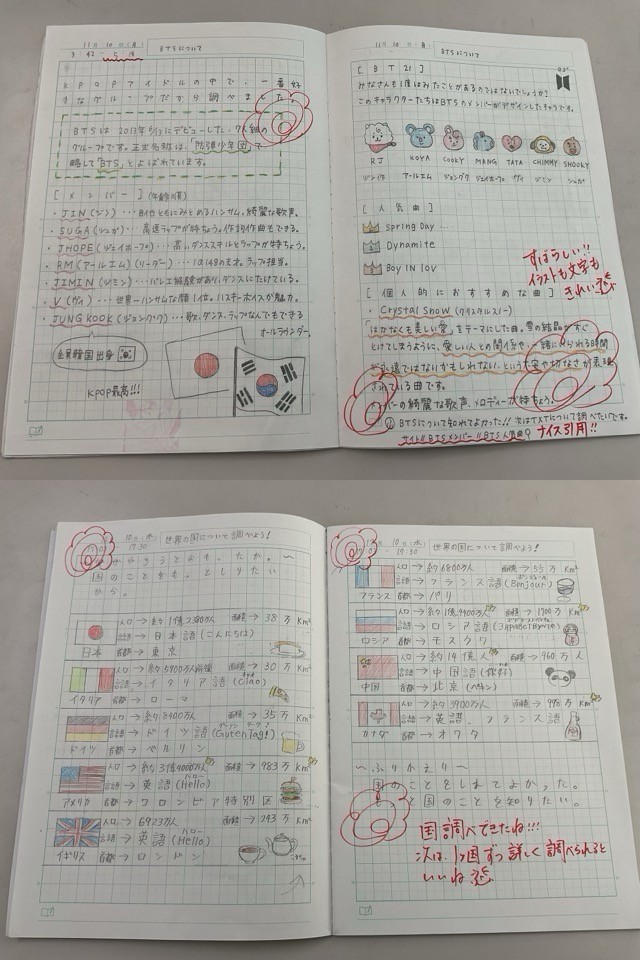 11月10日(月)
BTSについて
KPOPアイドルの中で、一番好
きなグループだから調べました。
BTSは2013年6/13にデビューした7人組の
グループです。正式名称は、「防弾少年団」で
略して「BTS」とよばれています。
[メンバー](年齢順)
・JIN(ジン)
・SUGA(シュガ)…高速ラップが特ちょう。作詞作曲もできる。
・JHOPE(ジェイホープ)…高いダンススキルとラップが特ちょう。
・RM(アールエム)(リーダー)…IQ148の天才。ラップ担当。
・JIMIN(ジミン)…バレエ経験があり、ダンスにたけている。
・V(ヴィ)…世界一ハンサムな顔1位。ハスキーボイスが魅力。
・JUNGKOOK(ジョングク)…歌、ダンス、ラップなんでもできる
オールラウンダー。
全員韓国出身
KPOP最高!!!
11月10日(月)
BTSについて
[BT21]
みなさんも1度はみたことがあるのではないでしょうか?
このキャラクターたちはBTSのメンバーがデザインしたキャラです。
RJ KOYA COOKY MANG TATA CHIMMY SHOOKY
ジン アールエム ジョングク ジェイホープ ヴィ ジミン シュガ
[人気曲]
1 Spring Day
2 Dynamite
3 Boy IN lov
すばらしい!!
イラストも文字も
きれい
[個人的におすすめな曲]
・Crystal Snow(クリスタルスノー)
「はかなくも美しい愛」をテーマにした曲。雪の結晶がすぐ
とけてしまうように、愛しい人との関係や一緒にいられる時間
が永遠ではないかもしれない、という不安や切なさが表現
されている曲です。
バーの綺麗な歌声、メロディーが特ちょう。
BTSについて知れてよかった!!次はTXTについて調べたいです。
サイト//BTSメンバー//BTS人気曲
ナイス引用!!
10日(水)
19:30
世界の国について調べよう!
国のことをも、としりたい
から。
人口→約1億2300万 面積→38万Km²
言語→日本語(こんにちは)
日本 首都→東京
人口→約5900万前後 面積→30万Km²
言語→イタリア語(Ciao)
イタリア 首都→ローマ
人口→約8400万 面積→35万Km²
言語→ドイツ語(Guten Tag!)
ドイツ 首都→ベルリン
人口→約3億4000万 面積→983万Km²
言語→英語(Hello)
アメリカ 首都→ワロンビア特別区
人口→6923万 面積→243万Km²
言語→英語(Hello)
イギリス 首都→ロンドン
10日(水)
19:30
世界の国について調べよう!
人口→約6800万 面積→55万Km²
言語→フランス語(Bonjour)
フランス 首都→パリ
人口→約1億4400万 面積→1700万Km²
言語→ロシア語(Здравствуйте)
ロシア 首都→モスクワ
人口→約14億人 面積→960万人
言語→中国語(你好)
中国 首都→北京(ペキン)
人口→約3900万 面積→998万Km²
言語→英語、フランス語
カナダ 首都→オタワ
〜ふりかえり〜
国のことをしれてよかった。
と国のことを知りたい。
国調べできたね!!!
次は、1ヶ国ずつ詳しく調べられると
いいね